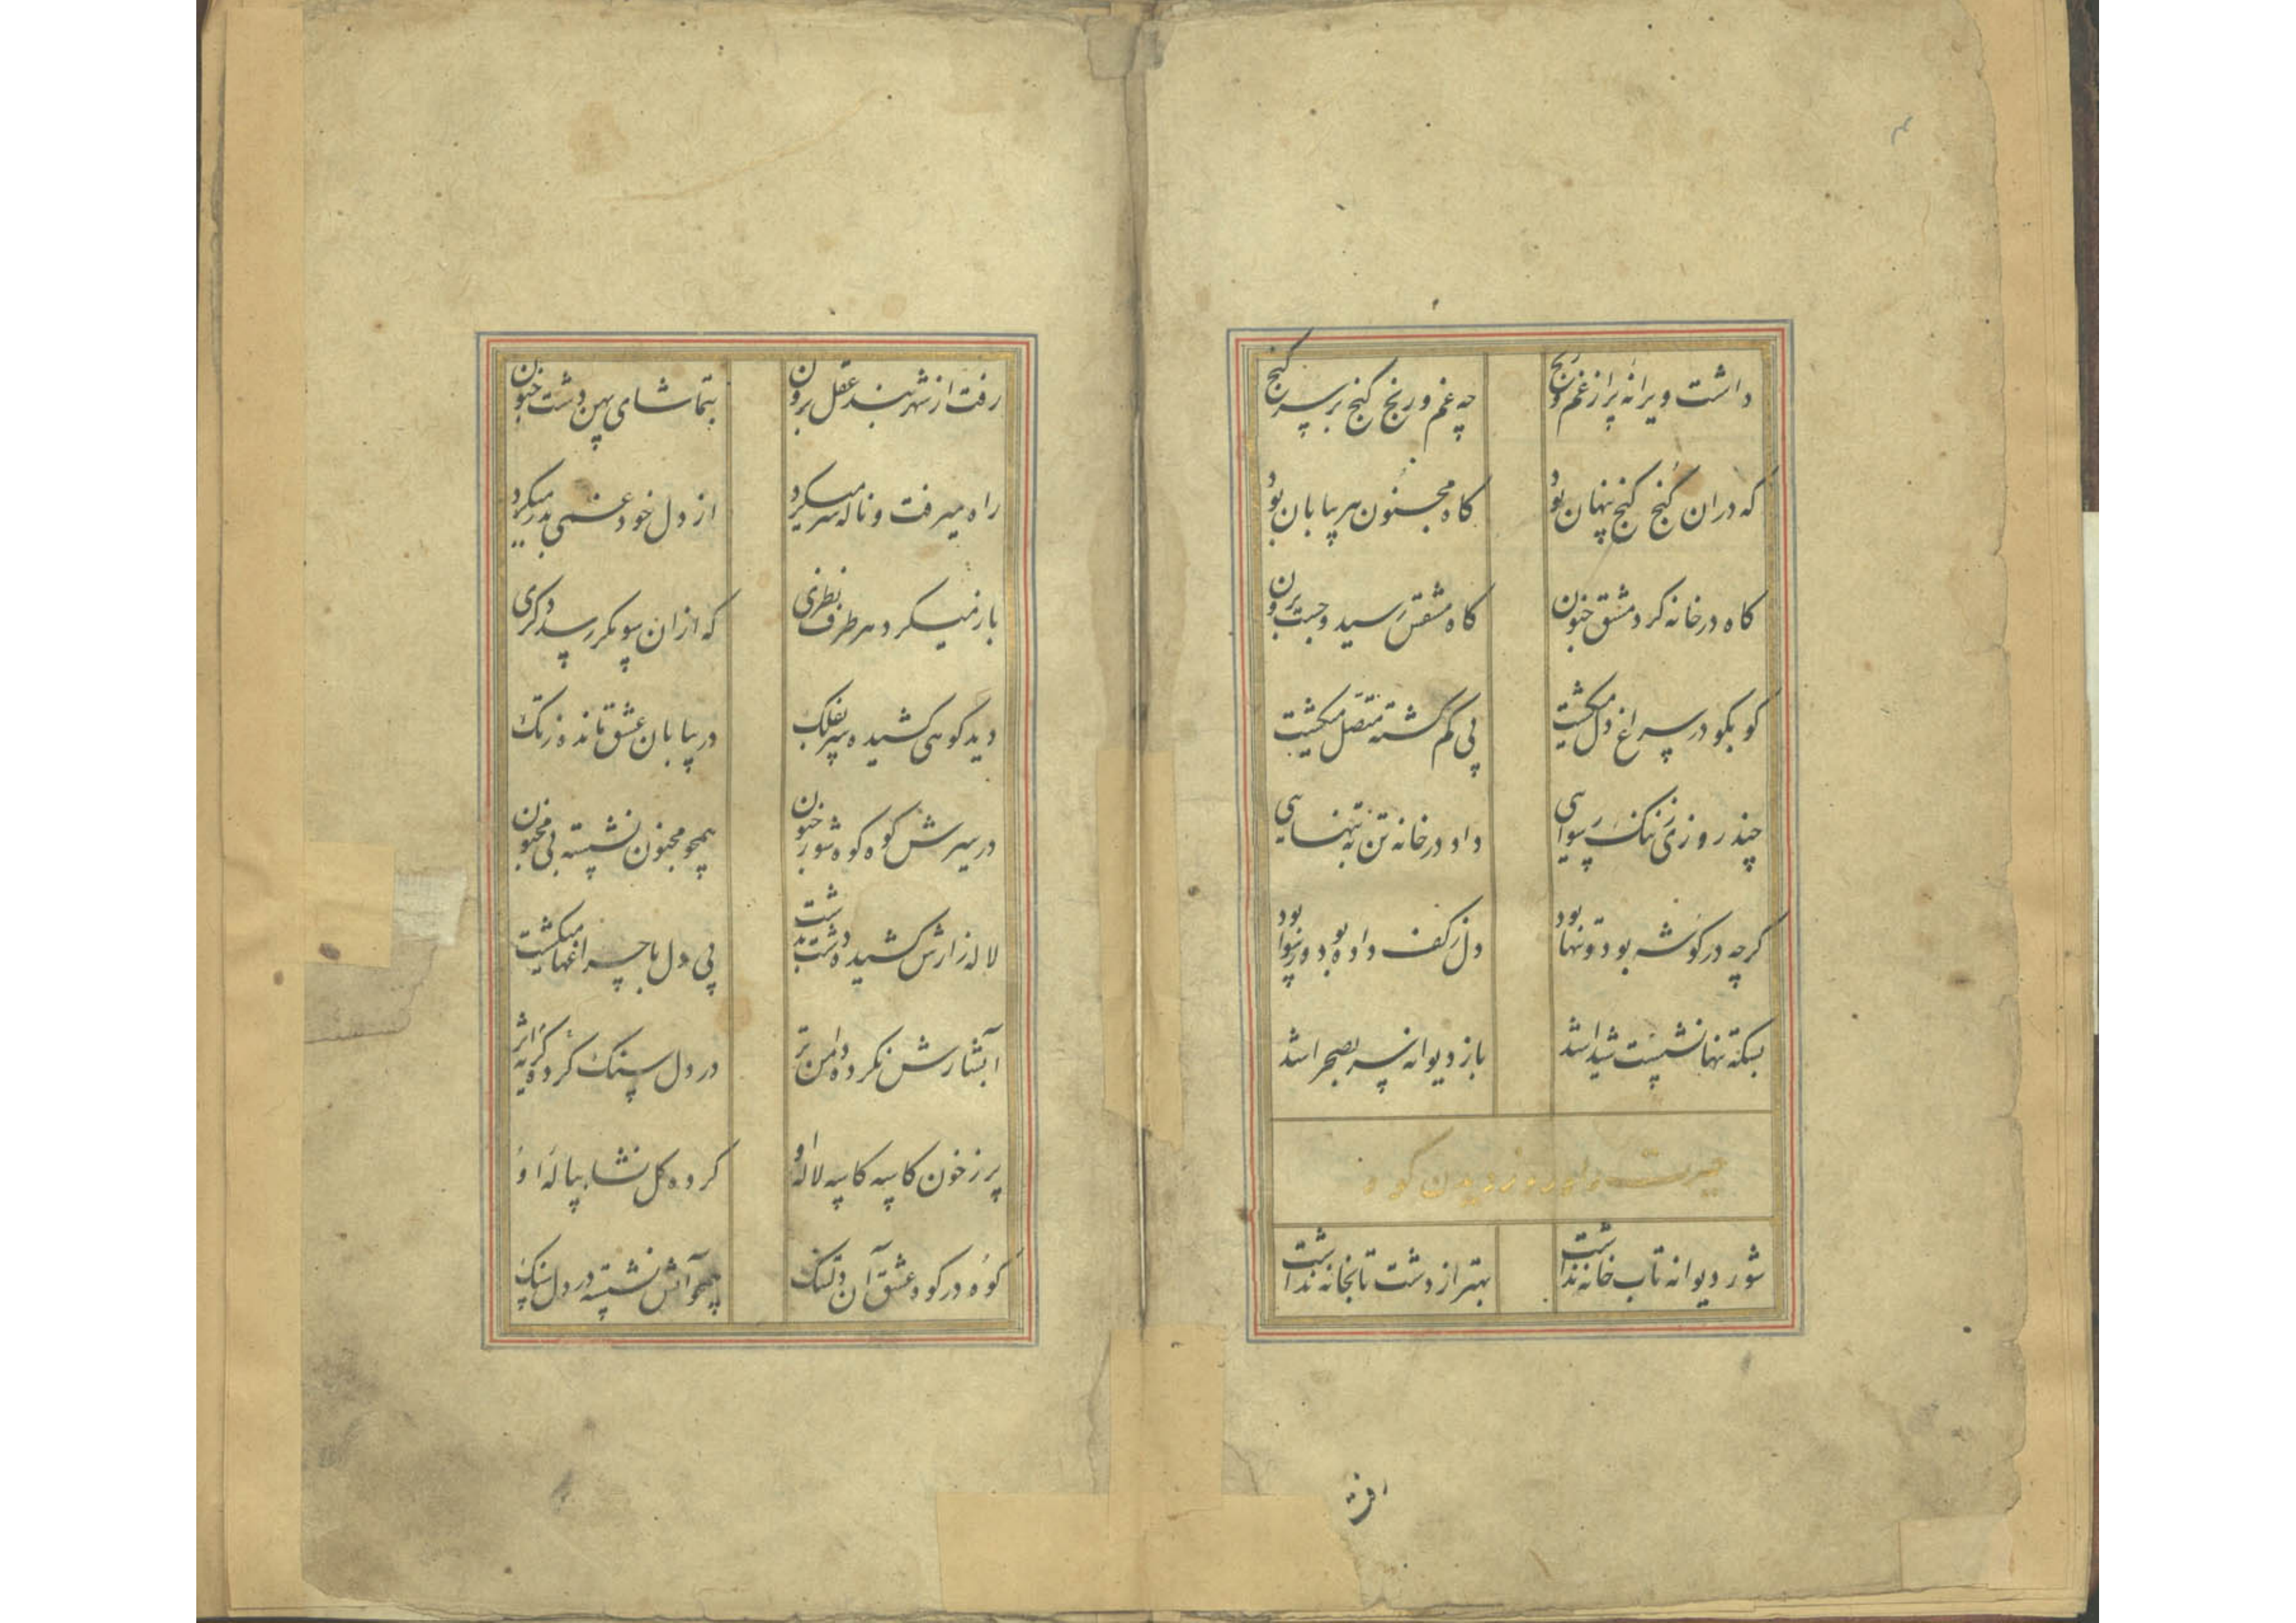 داشت ویرانه پر از غم و رنج چه غم و رنج کنج بر سر کنج
که دران کنج کنج پنهان بود کاه مجنون هر بیابان بود
کاه در خانه کرد مشق جنون کاه مشقش رسید و جست برون
کو بکو در سراغ دل میکشت پی کم کشته متصل میکشت
چند روزی ز ننک رسوایی داد در خانه تن به تنهایی
کرچه در کوشه بود و تنها بود دل ز کف داده بود و رسوا بود
بسکه تنها نشست شیدا شد باز دیوانه سر بصحرا شد
حیرت دیدن کوه
شور دیوانه تاب خانه نداشت بهتر از دشت تابخانه نداشت
رفت
رفت از شهر بند عقل برون بتماشای پهن دشت جنون
راه میرفت و ناله سر میکرد از دل خود غمی بدر میکرد
باز میکرد هر طرف نظری که ازان سو مکر رسد دکری
دید کوهی کشیده سر بفلک در بیابان عشق مانده ز تک
در سرش کوه کوه شور جنون همچو مجنون نشسته بی مجنون
لاله زارش کشیده دشت بدشت پی دل با چراغها میکشت
آبشارش نکرده دامن تر در دل سنک کرده کریه اثر
پر ز خون کاسه کاسه لاله او کرده کل نشا پیاله او
کوه در کوه عشق آن دلتنک همچو آتش نشسته در دل سنک